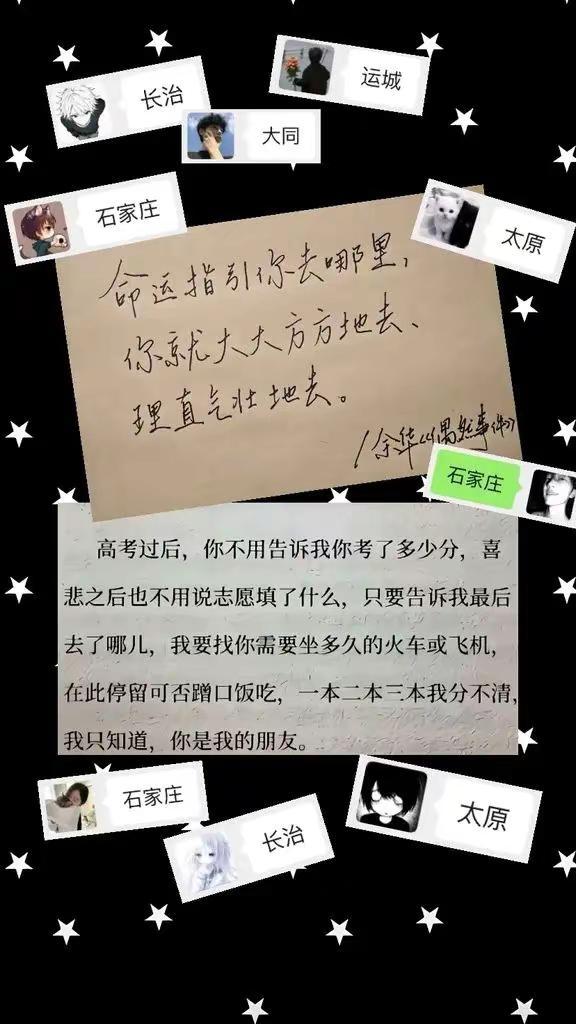 长治
运城
大同
石家庄
太原
命运指引你去哪里，
你就大大方方地去、
理直气壮地去。
/余华《偶然事件》
石家庄
高考过后，你不用告诉我你考了多少分，喜
悲之后也不用说志愿填了什么，只要告诉我最后
去了哪儿，我要找你需要坐多久的火车或飞机，
在此停留可否蹭口饭吃，一本二本三本我分不清，
我只知道，你是我的朋友。
石家庄
长治
太原